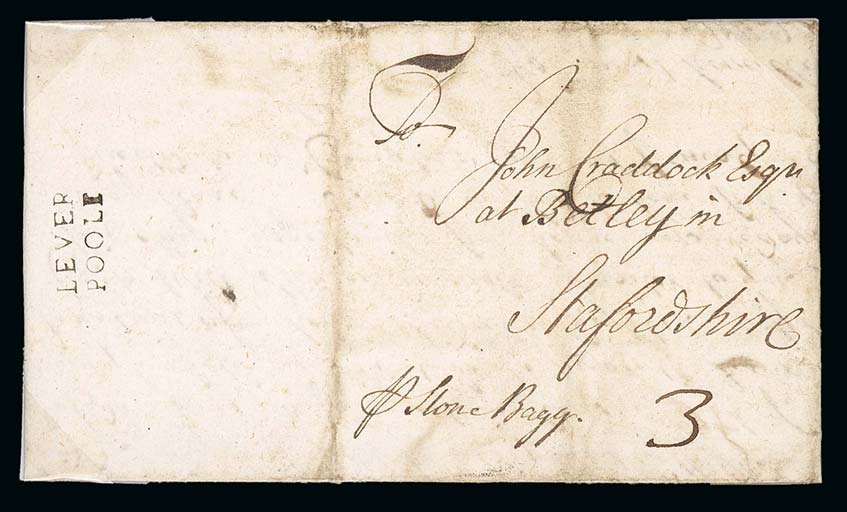 LEVER
POOLE
To
John Craddock Esqr
at Betley in
Stafordshire
⅌ Stone Bagg.
3